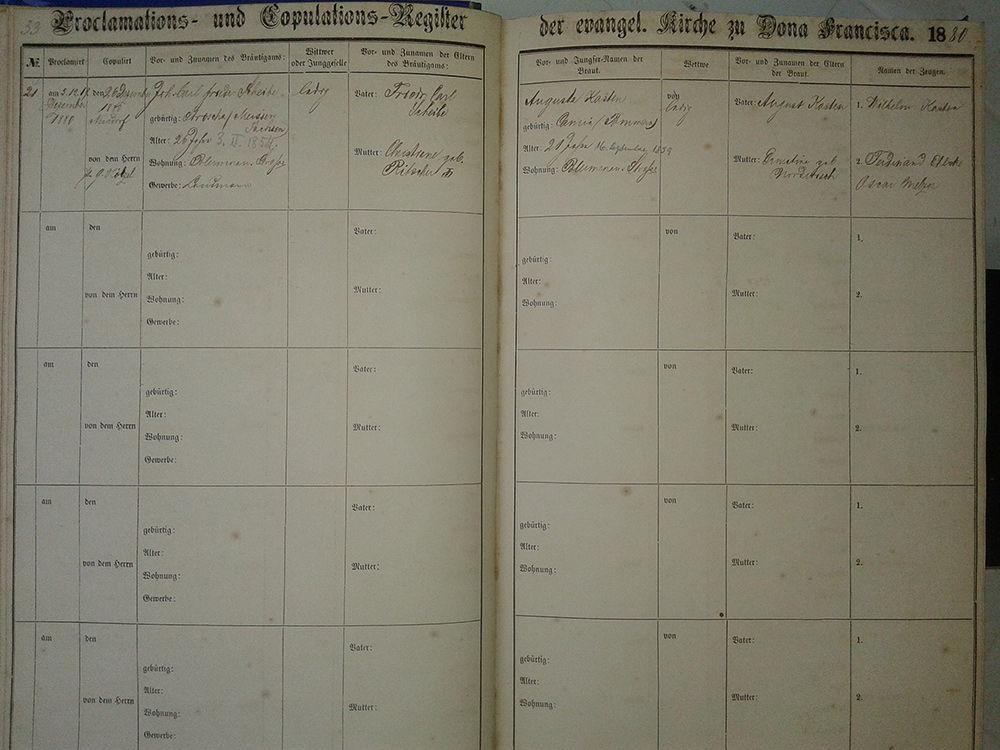 33
Proclamations- und Copulations-Register der evangel. Kirche zu Dona Francisca. 1880
№
Proclamirt
Copulirt
Vor- und Zunamen des Bräutigams:
Wittwer oder Junggeselle
Vor- und Zunamen der Eltern des Bräutigams:
Vor- und Jungfer-Namen der Braut.
Wettwe
Vor- und Zunamen der Eltern der Braut.
Namen der Zeugen.
am 5. 12. 19.
Dezember
1880
den 26 Dezember
von dem Herrn
Joh. Carl Friedr. Scheibe
gebürtig:
Sachsen
Alter: 26 Jahr 3. II. 1854
Wohnung: Blumenau Straße
Gewerbe: Landmann
ledig
Vater: Friedr. Carl
Scheibe
Mutter: Christiane geb.
Auguste Kasten
gebürtig:
Alter: 21 Jahr 16. September 1859
Wohnung: Blumenau Straße
von
ledig
Vater: August Kasten
Mutter: Ernestine geb.
1. Wilhelm Kasten
2. Ferdinand
Oscar
am
den
von dem Herrn
gebürtig:
Alter:
Wohnung:
Gewerbe:
Vater:
Mutter:
gebürtig:
Alter:
Wohnung:
von
Vater:
Mutter:
1.
2.
am
den
von dem Herrn
gebürtig:
Alter:
Wohnung:
Gewerbe:
Vater:
Mutter:
gebürtig:
Alter:
Wohnung:
von
Vater:
Mutter:
1.
2.
am
den
von dem Herrn
gebürtig:
Alter:
Wohnung:
Gewerbe:
Vater:
Mutter:
gebürtig:
Alter:
Wohnung:
von
Vater:
Mutter:
1.
2.
am
den
von dem Herrn
gebürtig:
Alter:
Wohnung:
Gewerbe:
Vater:
Mutter:
gebürtig:
Alter:
Wohnung:
von
Vater:
Mutter:
1.
2.